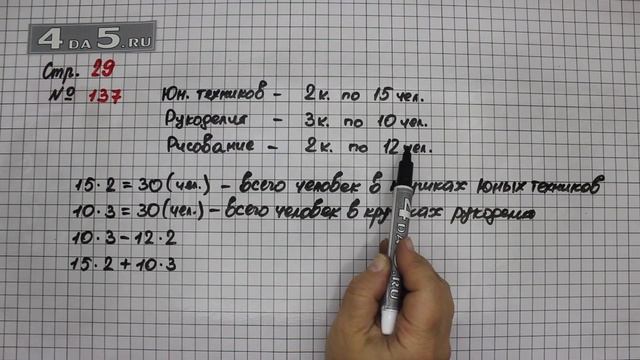 4DA5.RU
Стр. 29
№ 137
Юн. техников - 2к. по 15 чел.
Рукоделия - 3к. по 10 чел.
Рисование - 2к. по 12 чел.
15·2=30(чел.) - всего человек в юных техников
10·3=30(чел.) - всего человек в
10·3-12·2
15·2+10·3
4DA5.RU